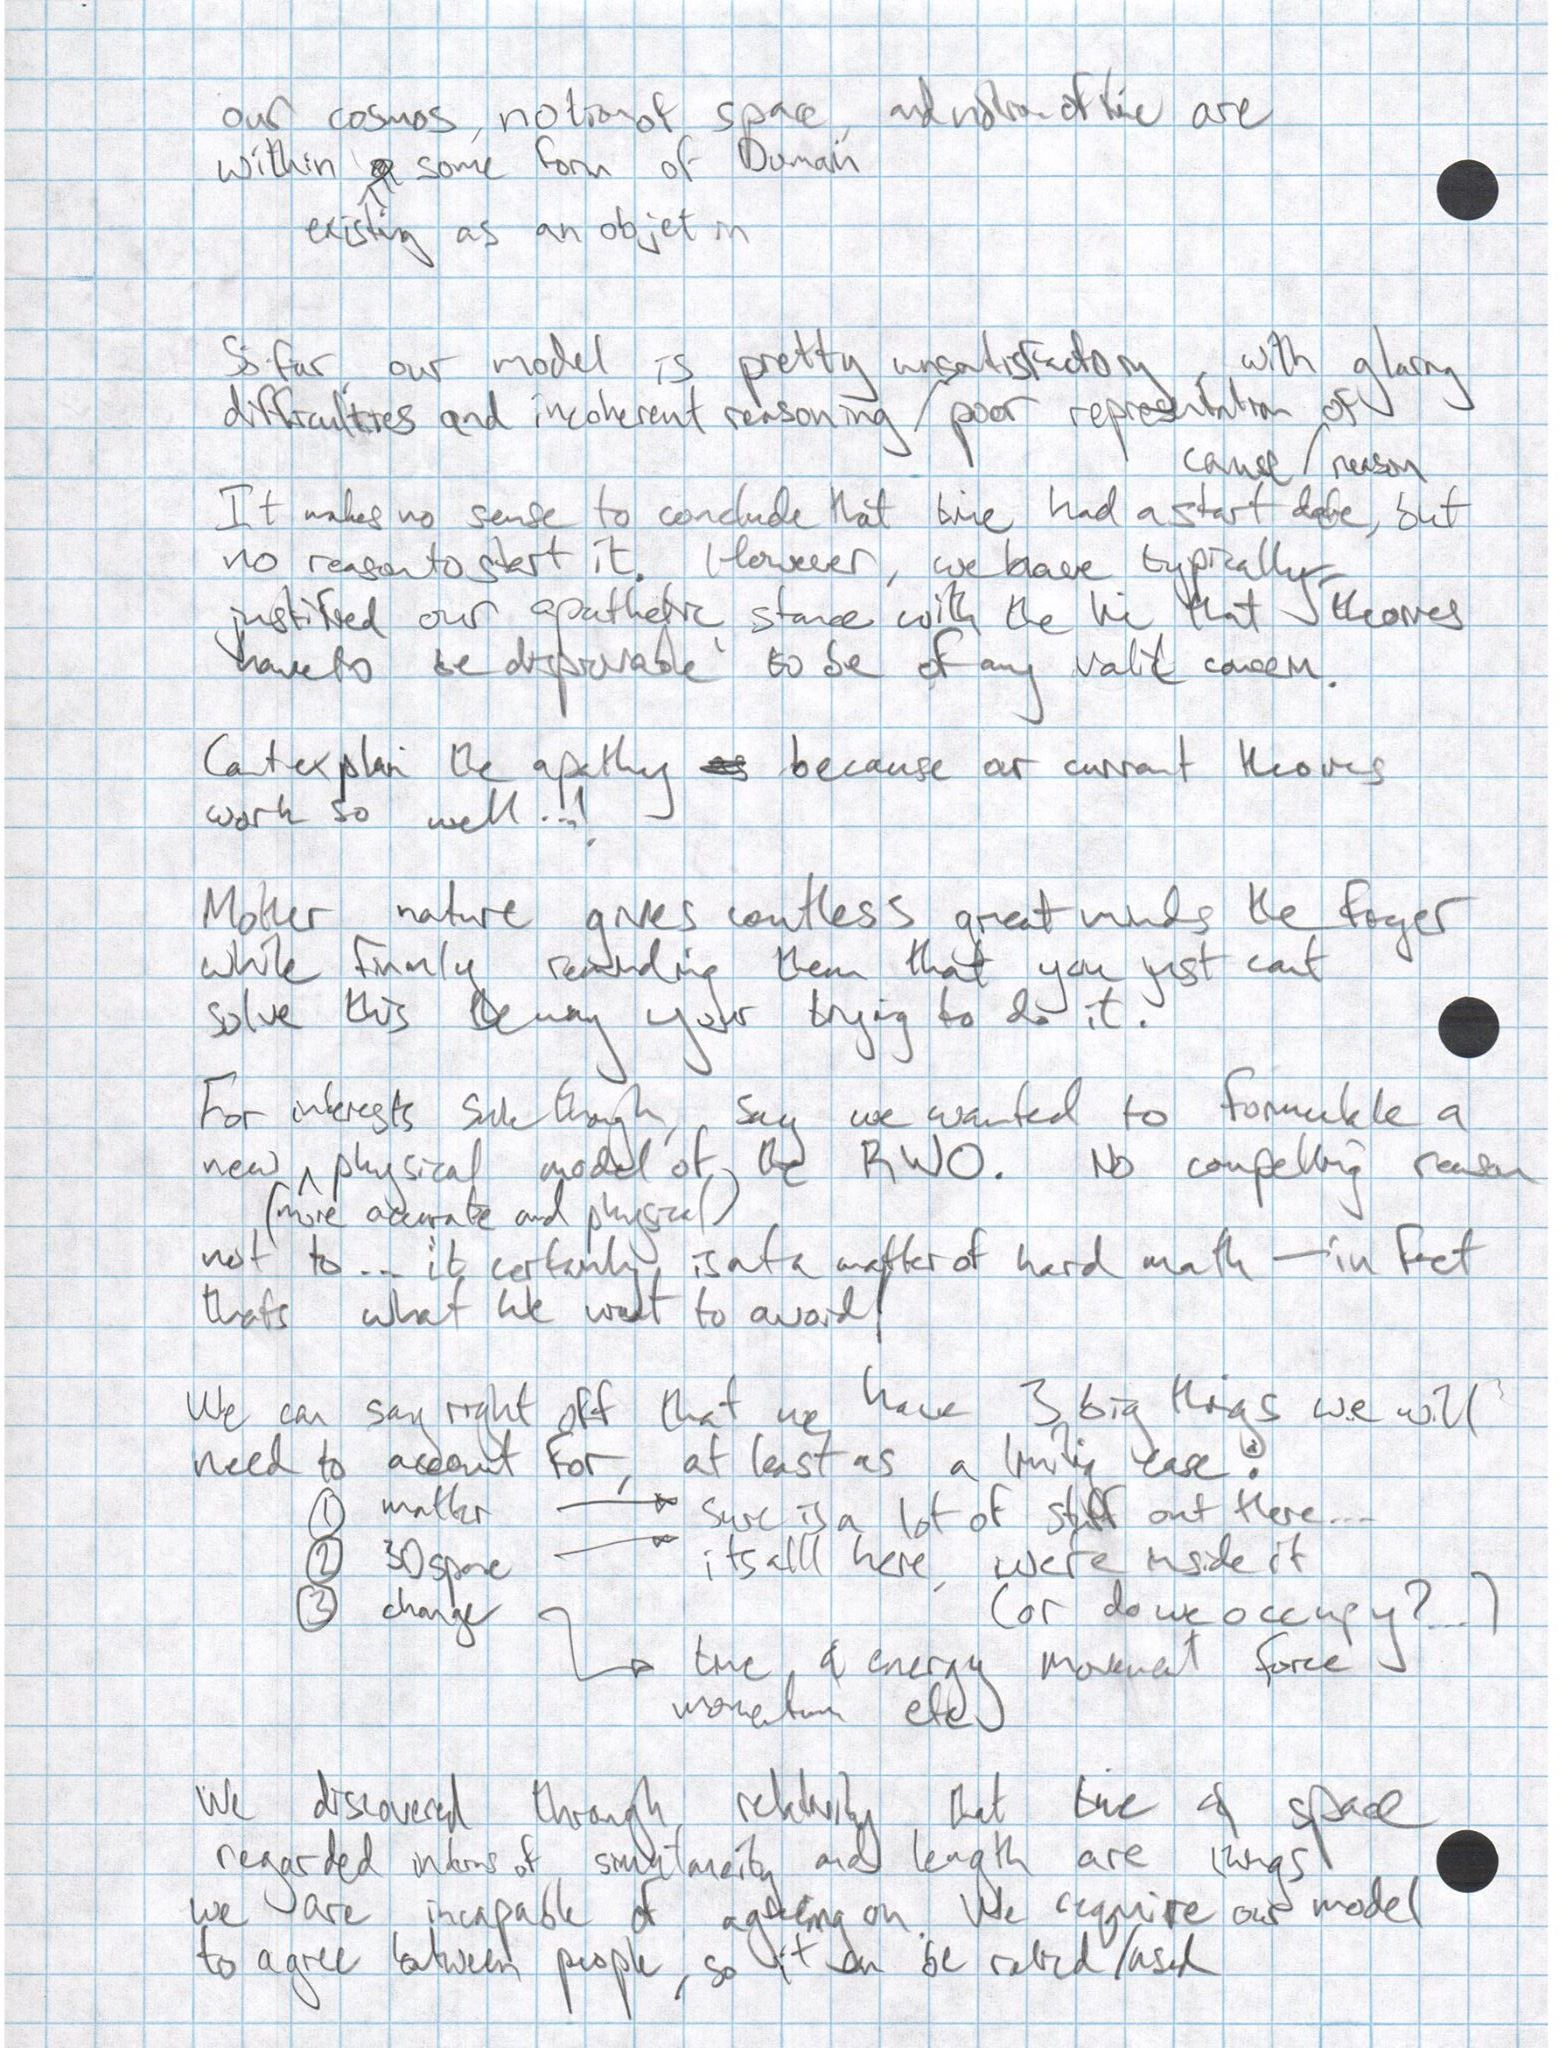 our cosmos, notion of space, and notion of time are
within some form of Domain
existing as an objet in
So far, our model is pretty unsatisfactory, with glaring
difficulties and incoherent reasoning / poor representation of
cause / reason
It makes no sense to conclude that time had a start date, but
no reason to start it. However, we have typically
justified our apathetic stance with the lie that theories
have to be disprovable to be of any valid concern.
Cant explain the apathy because our currant theories
work so well...!
Mother nature gives countless great minds the finger
while firmly reminding them that you just cant
solve this the way your trying to do it.
For interests sake though, say we wanted to formulate a
new physical model of the RWO. No compelling reason
(more accurate and physical)
not to... it certainly isnt a matter of hard math — in fact
thats what we want to avoid!
We can say right off that we have 3 big things we will
need to account for, at least as a limiting case:
① matter → sure is a lot of stuff out there...
② 3D space → its alll here, were inside it
③ change (or do we occupy?...)
time, & energy movement force
momentum etc
We discovered through relativity that time & space
regarded in terms of simultaneity and length are things
we are incapable of agreeing on. We require our model
to agree between people, so it can be /used